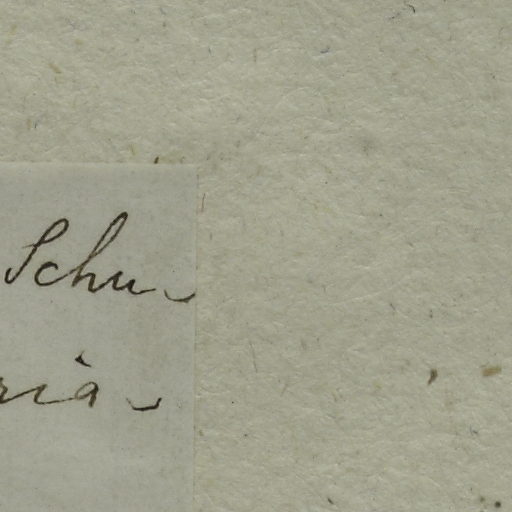 Schu-
ria-